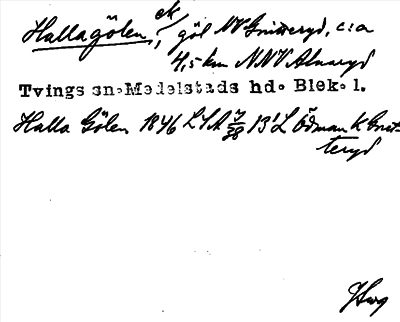 Hallagölen, ek
göl NV Gnitteryd, c:a
4,5 km NNV Alnaryd
Tvings sn. Medelstads hd. Blek. l.
Halla Gölen 1846 LSA 7/28 B'L Ödman K Gnit-
teryd